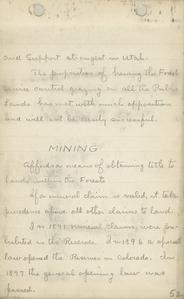 and Support strongest in Utah.
The proposition of having the Forest
Service control grazing on all the Public
Lands has met with much opposition
and will not be easily successful.
MINING
Affords a means of obtaining title to
lands within the Forests
If a mineral claim is valid, it takes
precedence above all other claims to land.
In 1891 mineral claims were pro-
hibited in the Reserve. In 1896 a special
law opened the Reserves in Colorado. In
1897 the general opening law was
passed.
52